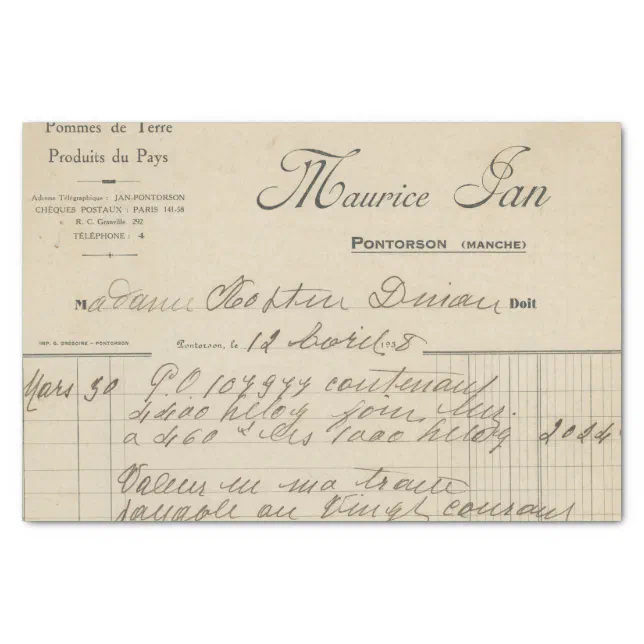 Pommes de Terre
Produits du Pays
Adresse Télégraphique : JAN-PONTORSON
CHÈQUES POSTAUX : PARIS 141-58
R. C. Granville 292
TÉLÉPHONE : 4
Maurice Jan
PONTORSON (MANCHE)
Madame Dinan Doit
IMP. G. GRÉGOIRE - PONTORSON
Pontorson, le 12 Avril 1938
Mars 30 P.O. 107977 contenant
4400 kilog foin
à 460 les 1000 kilog 2024
Valeur en ma traite
payable au Vingt courant